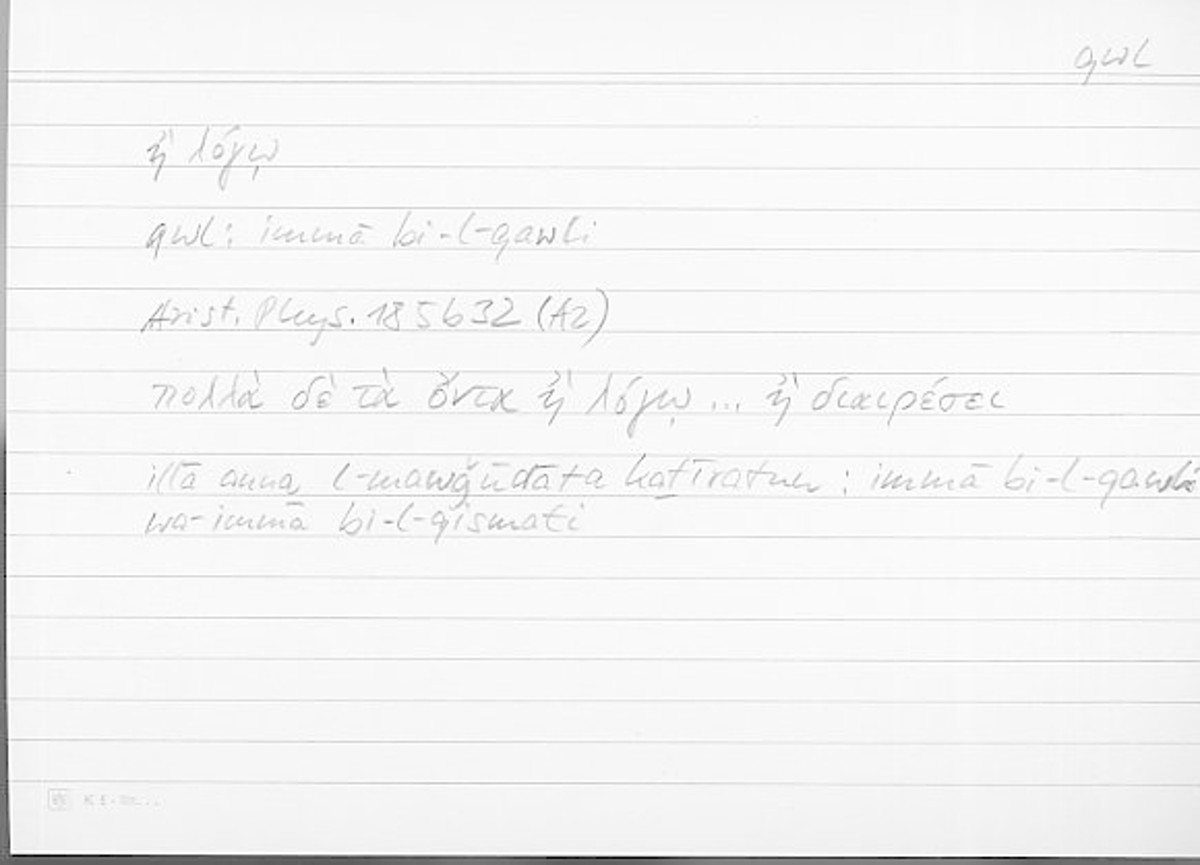 qwl
ἢ λόγῳ
qwl: immā bi-l-qawli
Arist. Phys. 185b32 (A2)
πολλὰ δὲ τὰ ὄντα ἢ λόγῳ ... ἢ διαιρέσει
illā anna l-mawǧūdāta kaṯīratun : immā bi-l-qawli
wa-immā bi-l-qismati